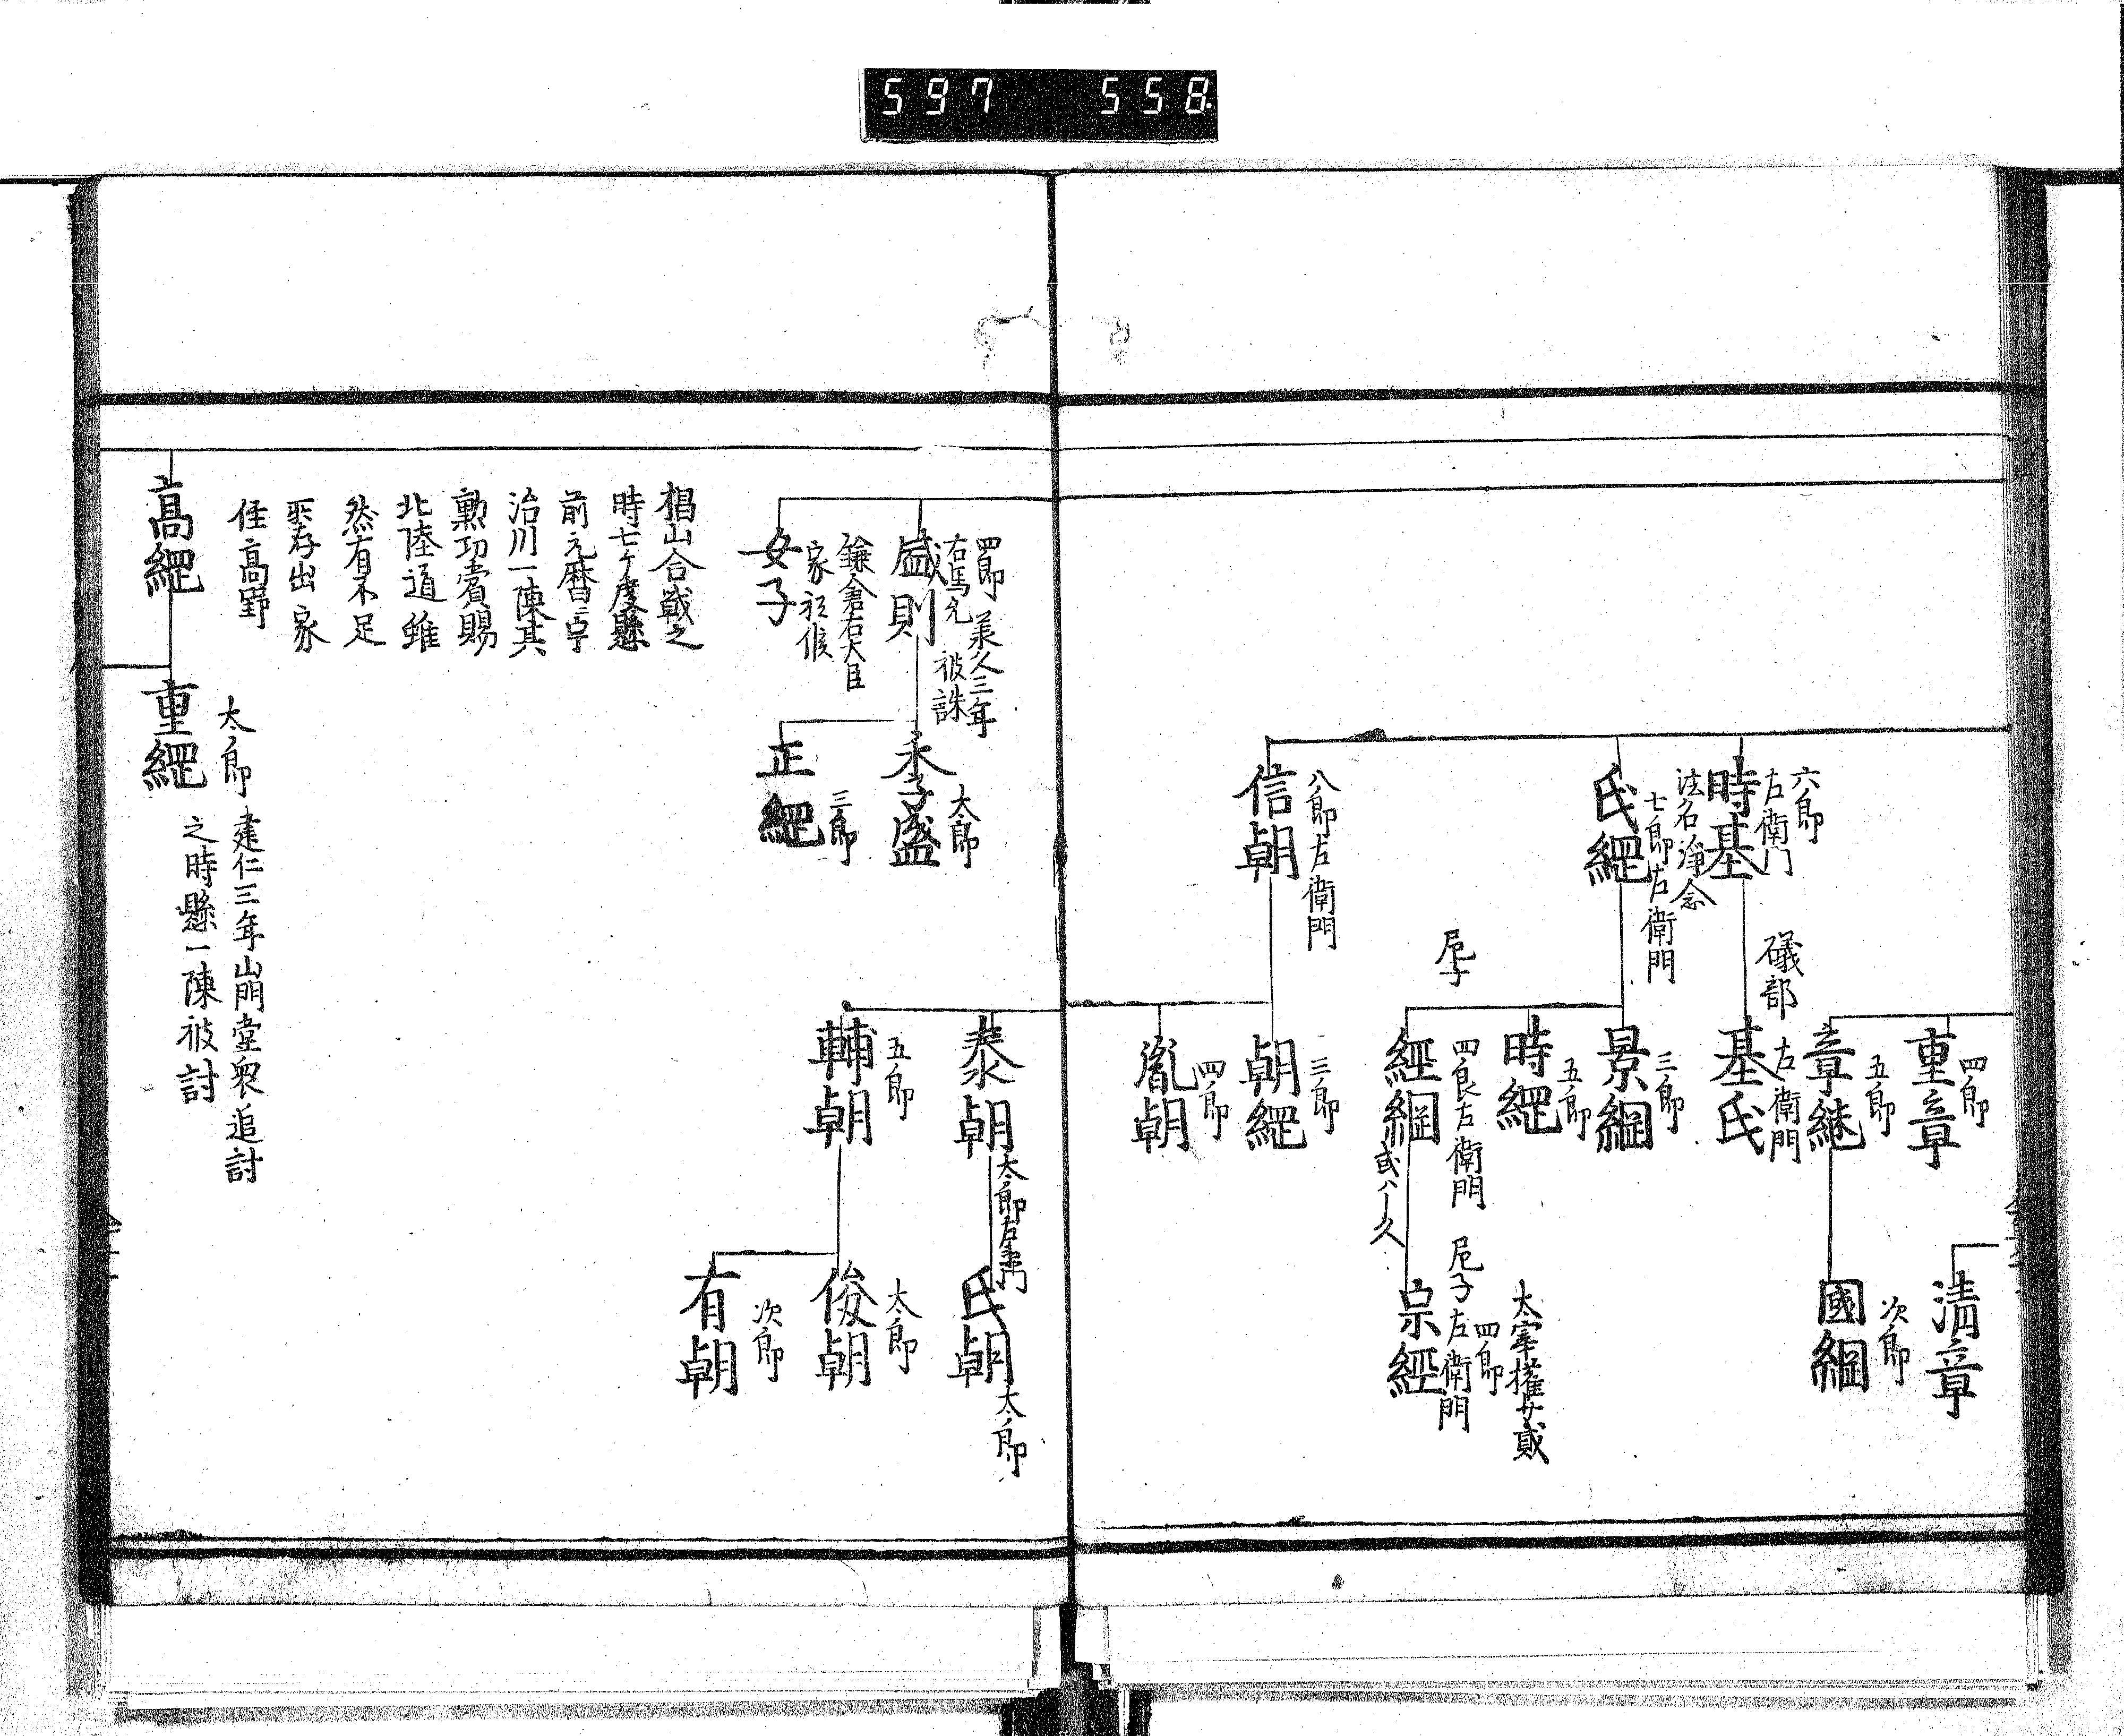 597 558
四郎
重章
清章
五郎
章継
次郎
國綱
六郎
左衛門
時基
法名淨念
礒部
左衛門
基氏
七郎左衛門
氏綱
三郎
景綱
五郎
時綱
尼子
四良左衛門
經綱
或八
久
太宰権少貳
四郎
尼子左衛門
宗經
八郎左衛門
信朝
三郎
朝綱
四郎
胤朝
四郎
右馬允
承久三年
被誅
盛則
太郎
季盛
三郎
正綱
鎌倉右大臣
家祗候
女子
泰朝
太郎左衛門
氏朝
太郎
五郎
輔朝
太郎
俊朝
次郎
有朝
椙山合戦之
時七ケ度懸
前元暦二
治川一陳其
勲功賞賜
北陸道雖
然有不足
出家
住高野
高綱
太郎
建仁三年山門堂衆追討
之時懸一陳被討
重綱